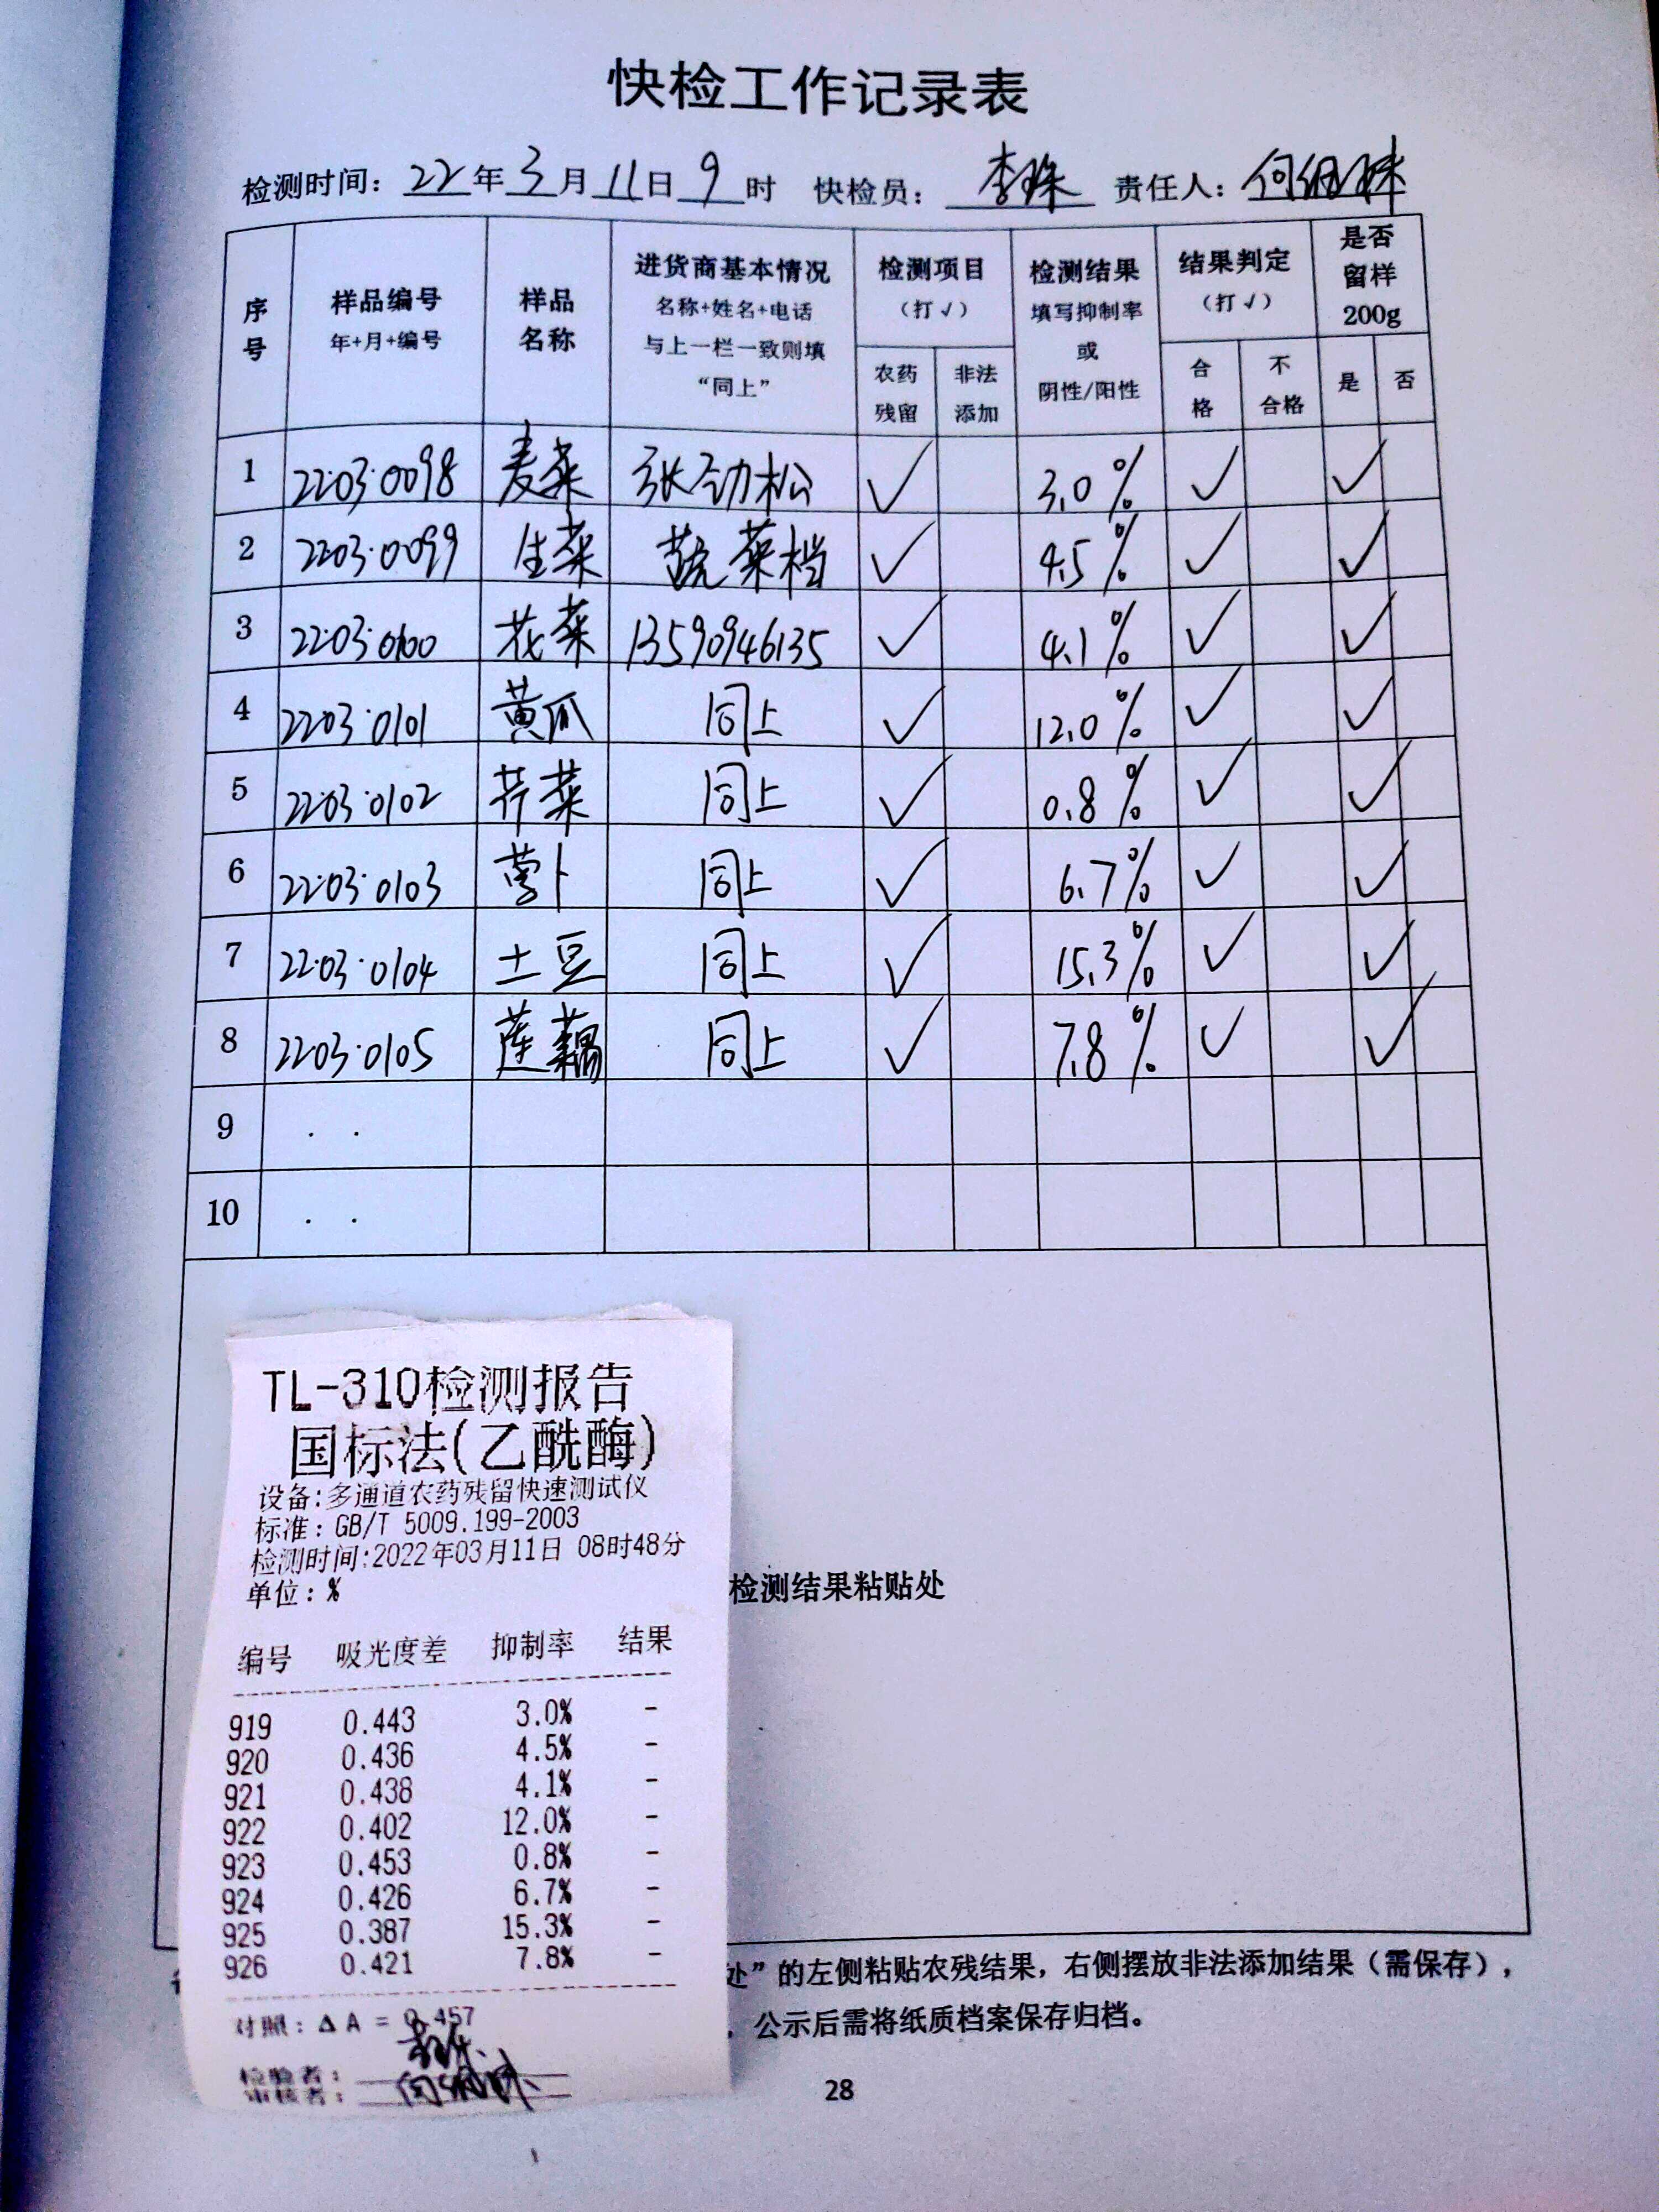 快检工作记录表
检测时间: 22年3月11日9时 快检员: 李珠 责任人:
序号 样品编号 年+月+编号 样品名称 进货商基本情况 名称+姓名+电话 与上一栏一致则填 “同上” 检测项目 (打√) 农药残留 非法添加 检测结果 填写抑制率 或 阴性/阳性 结果判定 (打√) 合格 不合格 是否留样 200g 是 否
1 22·03·0098 麦菜 张劲松 √ 3.0% √ √
2 22·03·0099 生菜 蔬菜档 √ 4.5% √ √
3 22·03·0100 花菜 13590946135 √ 4.1% √ √
4 22·03·0101 黄瓜 同上 √ 12.0% √ √
5 22·03·0102 芹菜 同上 √ 0.8% √ √
6 22·03·0103 萝卜 同上 √ 6.7% √ √
7 22·03·0104 土豆 同上 √ 15.3% √ √
8 22·03·0105 莲藕 同上 √ 7.8% √ √
9 · ·
10 · ·
TL-310检测报告
国标法(乙酰酶)
设备:多通道农药残留快速测试仪
标准: GB/T 5009.199-2003
检测时间:2022年03月11日 08时48分
单位: %
检测结果粘贴处
编号 吸光度差 抑制率 结果
919 0.443 3.0% -
920 0.436 4.5% -
921 0.438 4.1% -
922 0.402 12.0% -
923 0.453 0.8% -
924 0.426 6.7% -
925 0.387 15.3% -
926 0.421 7.8% -
对照: Δ A = 0.457
检验者:
审核者:
处”的左侧粘贴农残结果，右侧摆放非法添加结果（需保存），
，公示后需将纸质档案保存归档。
28